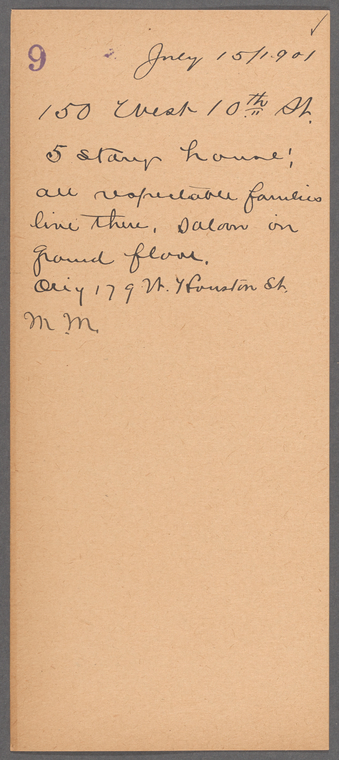 9 July 15/1901
150 West 10th St.
5 story house;
all respectable families
live there. Saloon on
ground floor.
Orig 179 W. Houston St.
M.M.